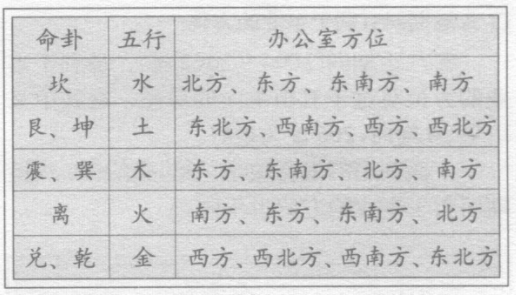 命卦 五行 办公室方位
坎 水 北方、东方、东南方、南方
艮、坤 土 东北方、西南方、西方、西北方
震、巽 木 东方、东南方、北方、南方
离 火 南方、东方、东南方、北方
兑、乾 金 西方、西北方、西南方、东北方